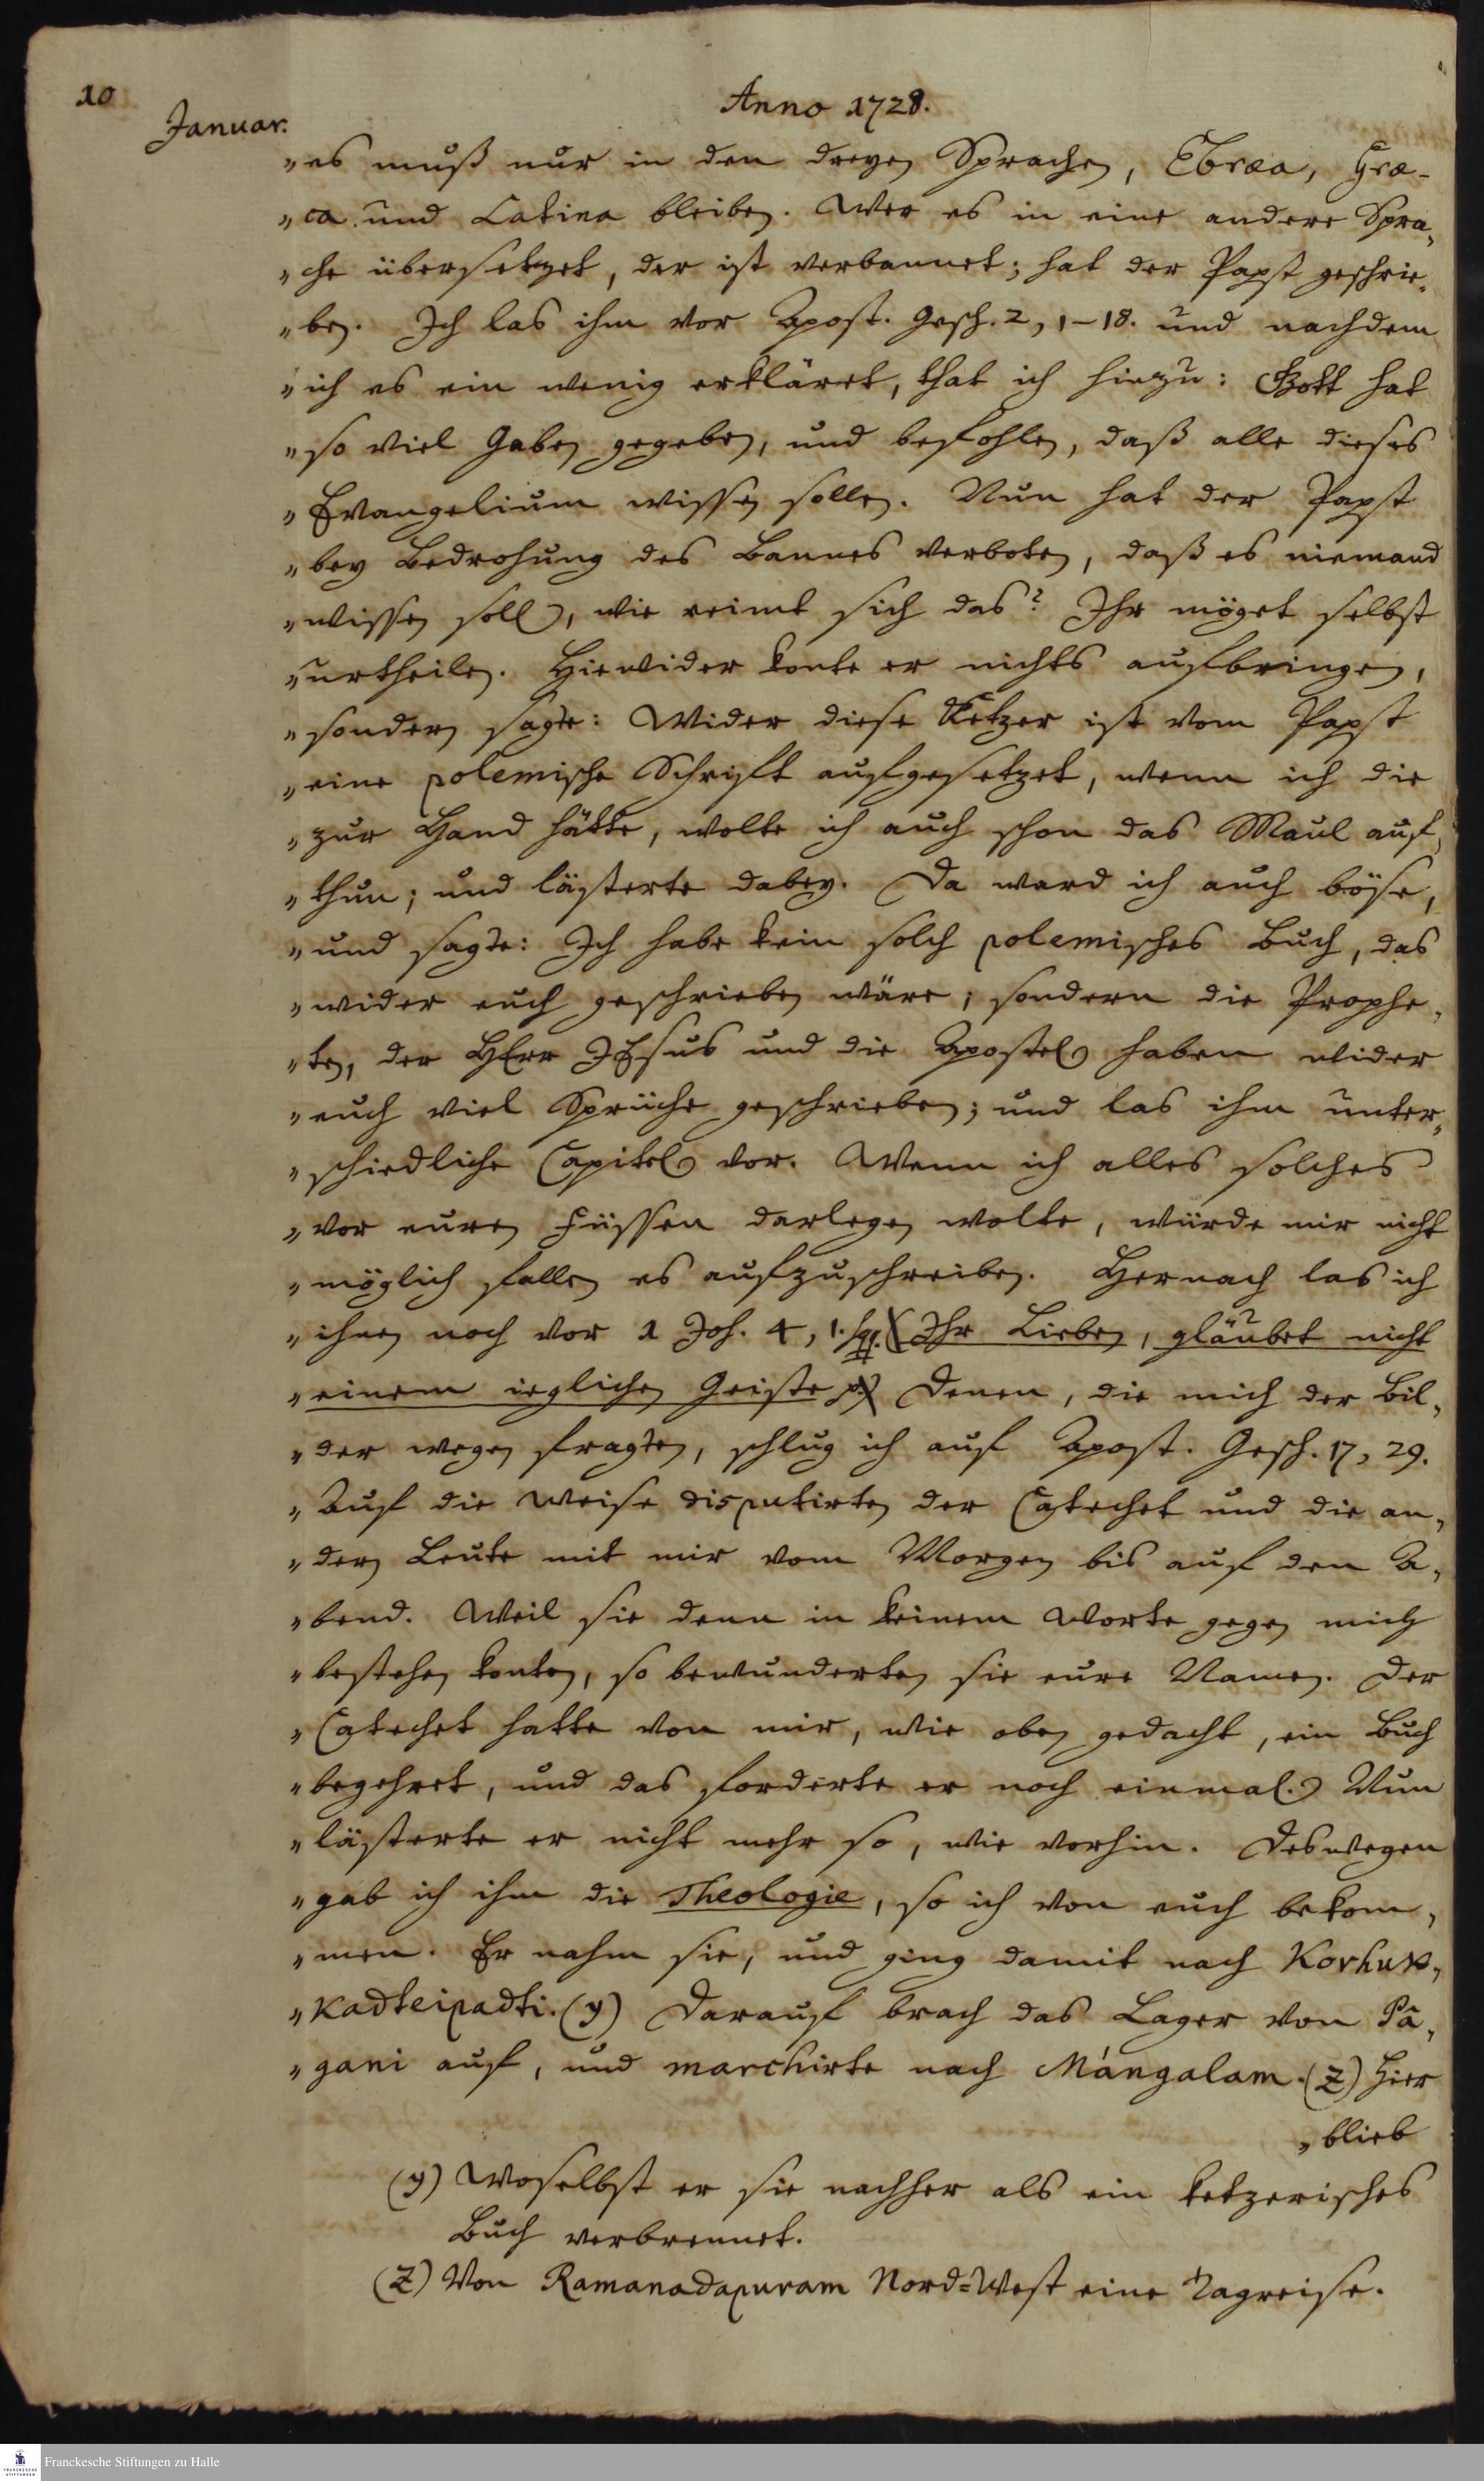 10
Anno 1728.
Januar.
„es muß nur in den dreyen Sprachen, Ebræa, Græ-
„ca und Latina bleiben. Wer es in eine andere Spra„
„che übersetzet, der ist verbannet; hat der Papst geschrie„
„ben. Ich las ihm vor Apost. Gesch. 2, 1–18. und nachdem
„ich es ein wenig erkläret, that ich hiezu: Gott hat
„so viel Gaben gegeben, und befohlen, daß alle dieses
„Evangelium wissen sollen. Nun hat der Papst
„bey Bedrohung des Bannes verboten, daß es niemand
„wissen soll, wie reimt sich das? Ihr möget selbst
„urtheilen. Hiewider konte er nichts aufbringen,
„sondern sagte: Wider diese Ketzer ist vom Papst
„eine polemische Schrift aufgesetzet, wenn ich die
„zur Hand hätte, wolte ich auch schon das Maul auf„
„thun; und lästerte dabey. Da ward ich auch böse,
„und sagte: Ich habe kein solch polemisches Buch, das
„wider euch geschrieben wäre; sondern die Prophe„
„ten, der HErr JEsus und die Apostel haben wider
„euch viel Sprüche geschrieben; und las ihm unter„
„schiedliche Capitel vor. Wenn ich alles solches
„vor euren Füssen darlegen wolte, würde mir nicht
„möglich fallen es aufzuschreiben. Hernach las ich
„ihnen noch vor 1 Joh. 4, 1. sqq. (Ihr Lieben, gläubet nicht
„einem ieglichen Geiste p.) Denen, die mich der Bil„
„der wegen fragten, schlug ich auf Apost. Gesch. 17, 29.
„Auf die Weise disputirten der Catechet und die an„
„dern Leute mit mir vom Morgen bis auf den A„
„bend. Weil sie denn in keinem Worte gegen mich
„bestehen konten, so bewunderten sie eure Namen. Der
„Catechet hatte von mir, wie oben gedacht, ein Buch
„begehret, und das forderte er noch einmal. Nun
„lästerte er nicht mehr so, wie vorhin. Deswegen
„gab ich ihm die Theologie, so ich von euch bekom„
„men. Er nahm sie, und ging damit nach Korhuk„
„kadteipadti. (y) Darauf brach das Lager von Pâ„
„gani auf, und marchirte nach Mángalam. (z) Hier
„blieb
(y) Woselbst er sie nachher als ein ketzerisches
Buch verbrennet.
(z) Von Ramanadapuram Nord=West eine Tagreise.
Franckesche Stiftungen zu Halle